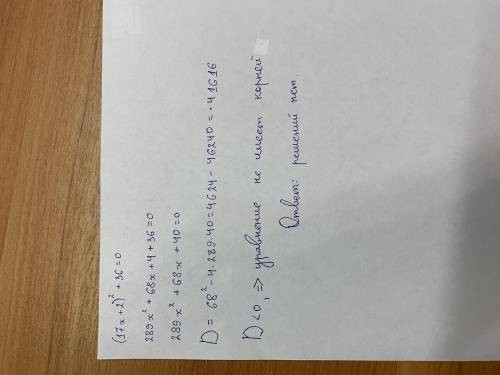 (17x+2)² + 36 = 0
289x² + 68x + 4 + 36 = 0
289x² + 68x + 40 = 0
D = 68² - 4·289·40 = 4624 - 46240 = -41616
D < 0, => уравнение не имеет корней
Ответ: решений нет.